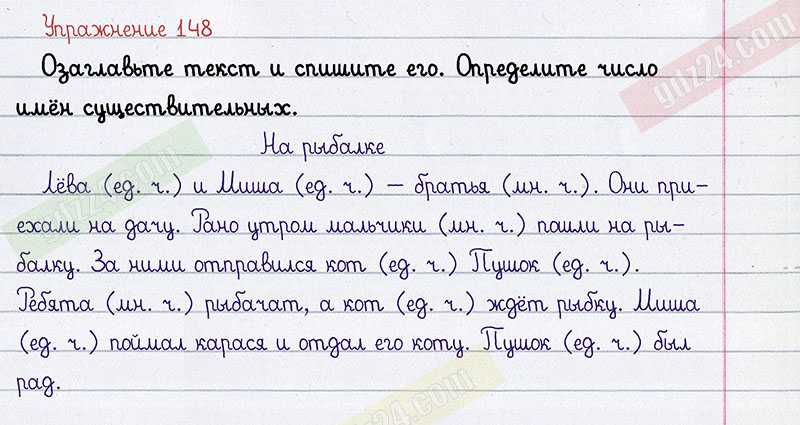 Упражнение 148
Озаглавьте текст и спишите его. Определите число
имён существительных.
На рыбалке
Лёва (ед. ч.) и Миша (ед. ч.) – братья (мн. ч.). Они при-
ехали на дачу. Рано утром мальчики (мн. ч.) пошли на ры-
балку. За ними отправился кот (ед. ч.) Пушок (ед. ч.).
Ребята (мн. ч.) рыбачат, а кот (ед. ч.) ждёт рыбку. Миша
(ед. ч.) поймал карася и отдал его коту. Пушок (ед. ч.) был
рад.
gdz24.com
gdz24.com
gdz24.com